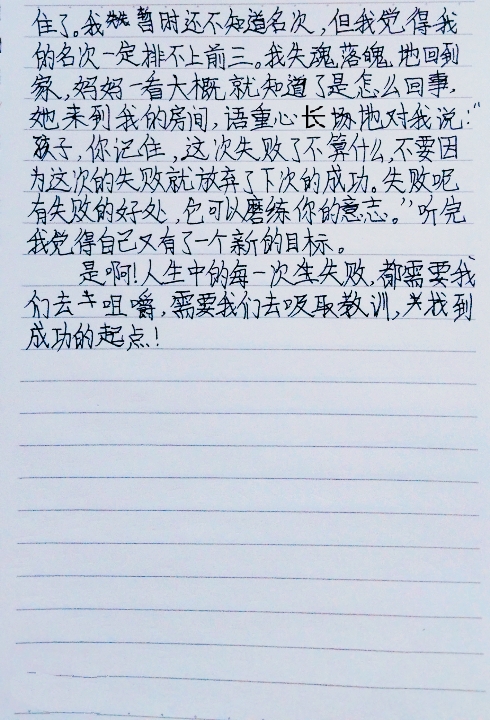 住了。我暂时还不知道名次，但我觉得我
的名次一定排不上前三。我失魂落魄地回到
家，妈妈一看大概就知道了是怎么回事，
她来到我的房间，语重心长地对我说：“
孩子，你记住，这次失败了不算什么，不要因
为这次的失败就放弃了下次的成功。失败呢
有失败的好处，它可以磨练你的意志。”听完
我觉得自己又有了一个新的目标。
是啊！人生中的每一次失败，都需要我
们去咀嚼，需要我们去吸取教训，找到
成功的起点！